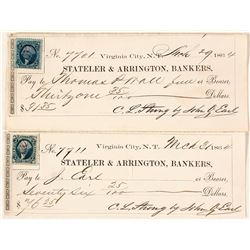 No. 7701 Virginia City, N.T. Feb 29 1864
STATELER & ARRINGTON, BANKERS,
Pay to Thomas P Wall or Bearer,
Thirty one 25/100 Dollars.
$31/25 C. L. Strong by John J Earl
No. 7711 Virginia City, N.T. Mch 21 1864
STATELER & ARRINGTON, BANKERS,
Pay to J. Earl or Bearer,
Seventy six 25/100 Dollars.
$76/25 C. L. Strong by John J Earl